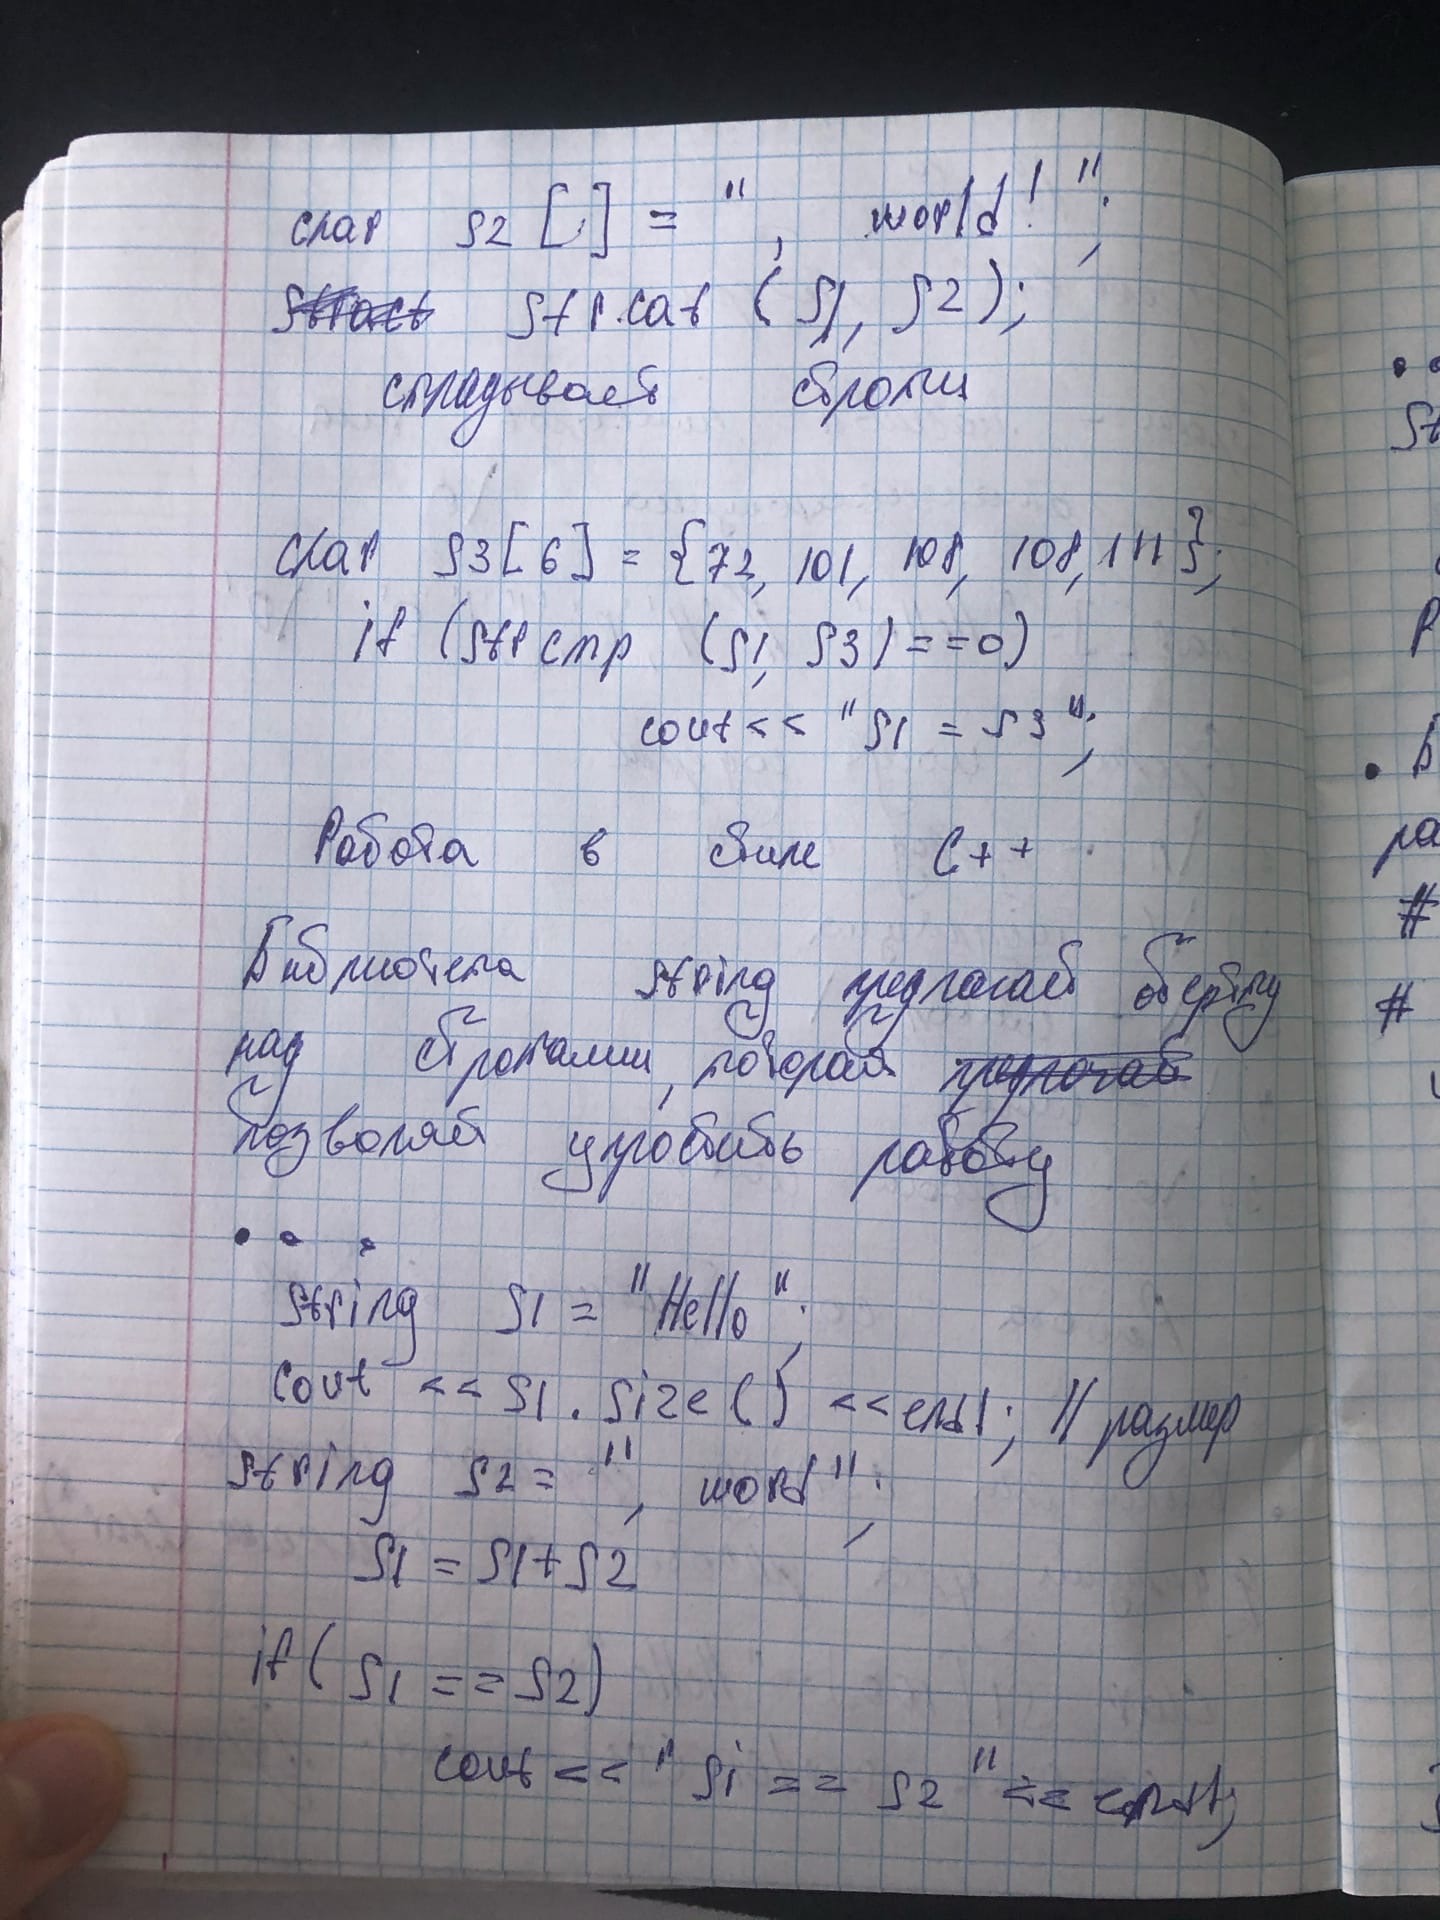 char s2[] = ", world!";
strcat (s1, s2);
складывает строки
char s3[6] = {72, 101, 108, 108, 111};
if (strcmp (s1, s3) == 0)
cout << "s1 = s3";
Работа в стиле C++
Библиотека string предлагает обертку
над строками, которая
позволяет упростить работу
• • •
string s1 = "Hello";
cout << s1.size() << endl; // размер
string s2 = ", word";
s1 = s1 + s2
if (s1 == s2)
cout << "s1 == s2" << endl;